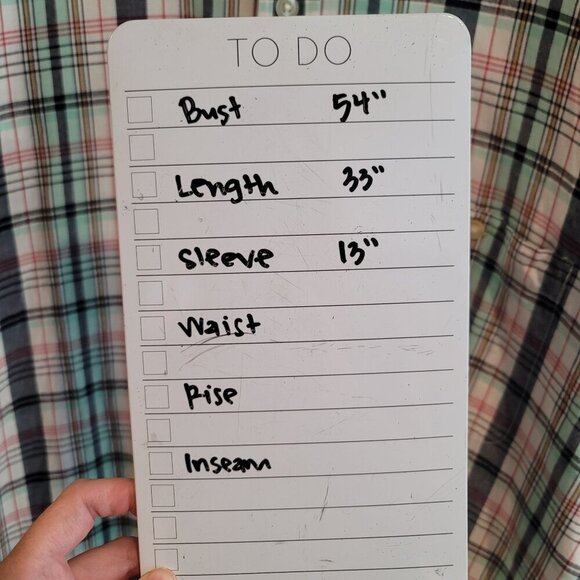 TO DO
Bust 54"
Length 33"
Sleeve 13"
Waist
Rise
Inseam